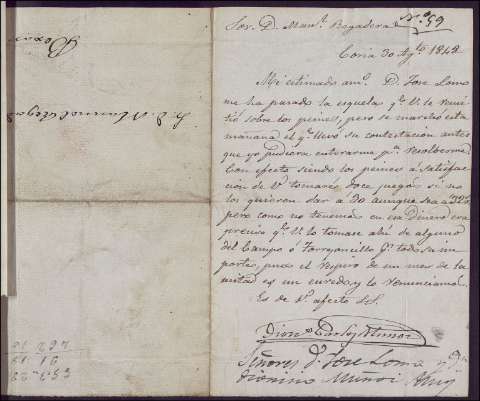 Sor. D. Man.l Regadera
No. 59
Coria 30 Ag.to 1848
Mi estimado am.o D. Jose Lomo
me ha pasado la esquela q.e V. le remi
tió sobre los peines, pero se marchó esta
mañana el q.e llevó su contestación antes
que yo pudiera enterarme p.a resolverme.
Con efecto siendo los peines a satisfac
ción de V. tomarés doce juegos si no
los quieran dar a 30 aunque sea a 32
pero como no tenemos en esa Dinero era
preciso q.e V. lo tomase ahi de alguno
del Campo ó Torrejoncillo p.r todo su im
porte, pues el respiro de un mes de la
mitad es un enredo y lo renunciamos.
Es de V. afecto S.S.
Señores D. Jose Lomo y D.n
Dionisio Muñoi
S. D. Manuel